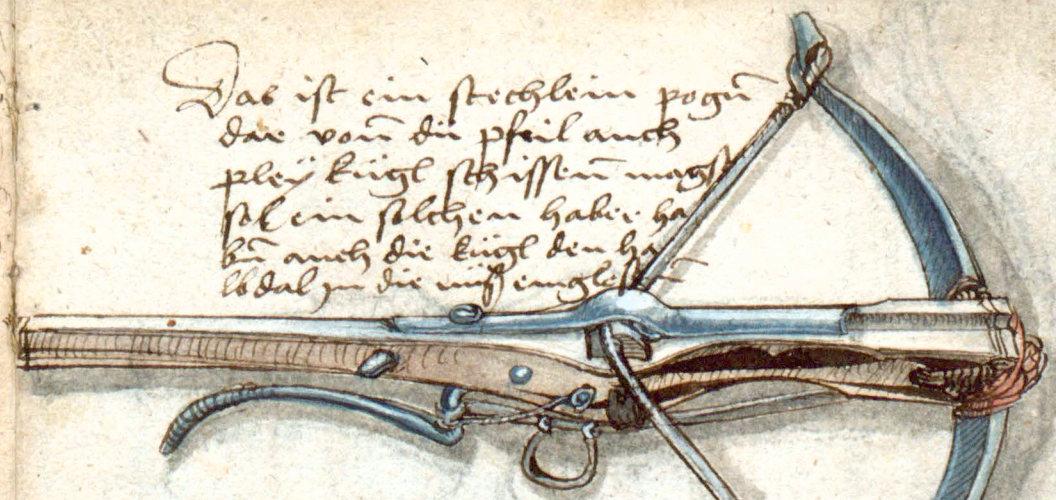 Das ist ein stechlein pogñ
dar voñ dü pfeil auch
pley kügl schissen̄ magst
sol ein solchen haber ha
bn̄ auch die kügl den ha
lb dal jn die nüß